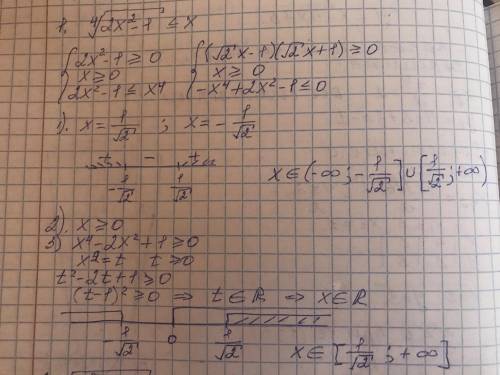 1. ⁴√(2x²-1) ≤ x
{ 2x²-1 ≥ 0   { (√2x-1)(√2x+1) ≥ 0
x ≥ 0   x ≥ 0
2x²-1 ≤ x⁴   -x⁴+2x²-1 ≤ 0
1). x = 1/√2 ; x = -1/√2
+ - +
-1/√2   1/√2   x ∈ (-∞; -1/√2] ∪ [1/√2; +∞)
2). x ≥ 0
3) x⁴-2x²+1 ≥ 0
x² = t   t ≥ 0
t²-2t+1 ≥ 0
(t-1)² ≥ 0 ⇒ t ∈ R ⇒ x ∈ R
-1/√2   0   1/√2   x ∈ [1/√2; +∞]